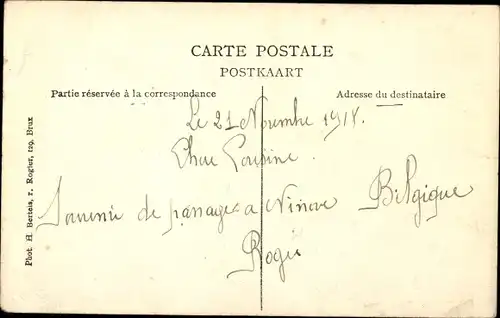 CARTE POSTALE
POSTKAART
Partie réservée à la correspondance
Adresse du destinataire
Le 21 Novembre 1918.
Chère Cousine.
Souvenir de passage a Ninove Belgique
Roger
Phot. H. Bertels, r. Rogier, 129, Brux